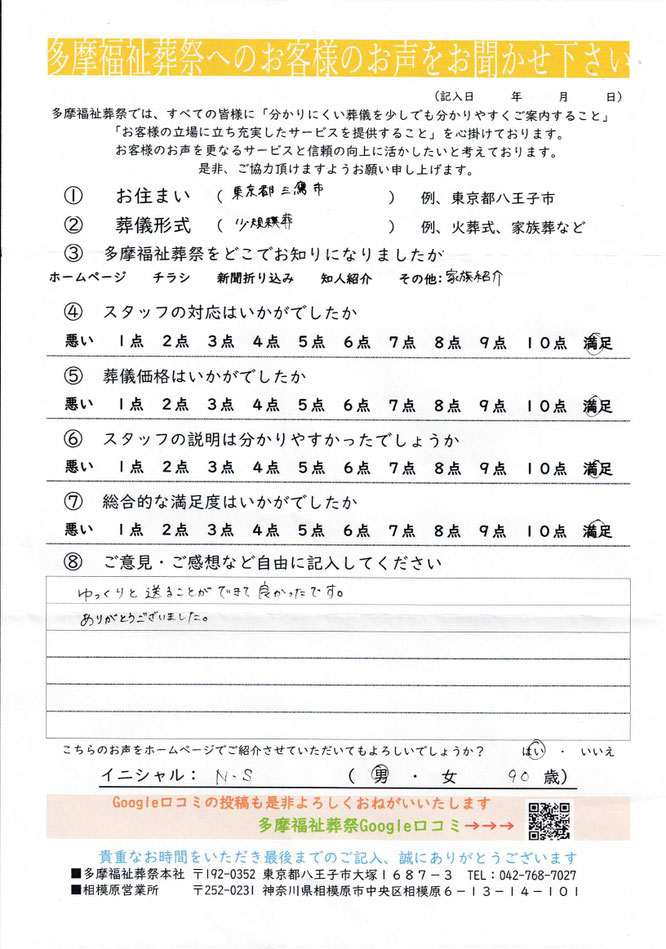 多摩福祉葬祭へのお客様のお声をお聞かせ下さい
(記入日　　年　　月　　日)
多摩福祉葬祭では、すべての皆様に「分かりにくい葬儀を少しでも分かりやすくご案内すること」
「お客様の立場に立ち充実したサービスを提供すること」を心掛けております。
お客様のお声を更なるサービスと信頼の向上に活かしたいと考えております。
是非、ご協力頂けますようお願い申し上げます。
① お住まい （ 東京都三鷹市 ） 例、東京都八王子市
② 葬儀形式 （ 少規模葬 ） 例、火葬式、家族葬など
③ 多摩福祉葬祭をどこでお知りになりましたか
ホームページ　チラシ　新聞折り込み　知人紹介　その他：家族紹介
④ スタッフの対応はいかがでしたか
悪い　１点　２点　３点　４点　５点　６点　７点　８点　９点　１０点　満足
⑤ 葬儀価格はいかがでしたか
悪い　１点　２点　３点　４点　５点　６点　７点　８点　９点　１０点　満足
⑥ スタッフの説明は分かりやすかったでしょうか
悪い　１点　２点　３点　４点　５点　６点　７点　８点　９点　１０点　満足
⑦ 総合的な満足度はいかがでしたか
悪い　１点　２点　３点　４点　５点　６点　７点　８点　９点　１０点　満足
⑧ ご意見・ご感想など自由に記入してください
ゆっくりと送ることができて良かったです。
ありがとうございました。
こちらのお声をホームページでご紹介させていただいてもよろしいでしょうか？　はい ・ いいえ
イニシャル： N・S （ 男 ・ 女　90 歳）
Google口コミの投稿も是非よろしくおねがいいたします
多摩福祉葬祭Google口コミ→→→
貴重なお時間をいただき最後までのご記入、誠にありがとうございます
■多摩福祉葬祭本社　〒192-0352 東京都八王子市大塚１６８７－３　TEL：042-768-7027
■相模原営業所　〒252-0231 神奈川県相模原市中央区相模原６－１３－１４－１０１